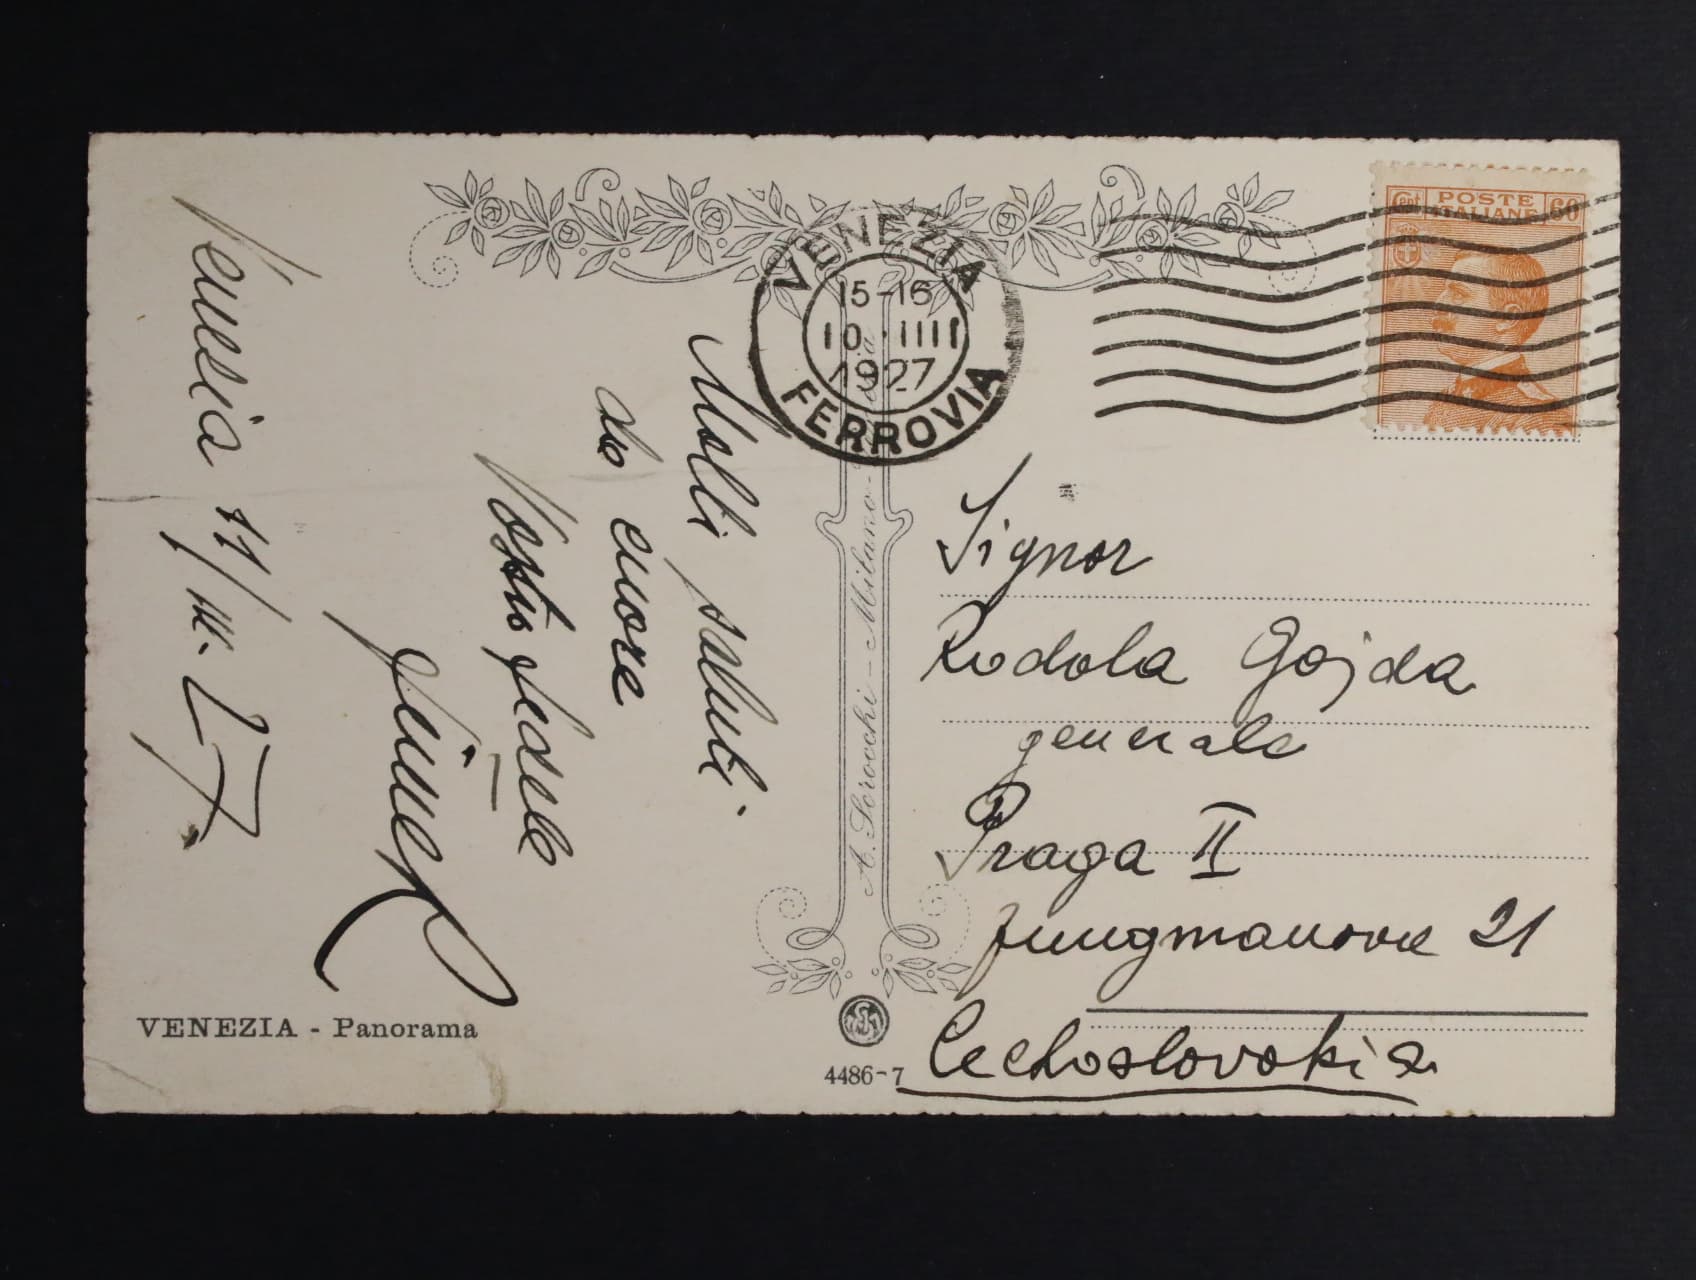 Venesia 11/III. 27.
Molti saluti
da cuore
Vostro fedele
VENEZIA
15-16
10·IIII
1927
FERROVIA
Cent POSTE 60
ITALIANE
Signor
Rodola Gojda
generale
Praga II
Jungmanova 21
Cechoslovakia
A. Scrocchi - Milano
VENEZIA - Panorama
4486-7